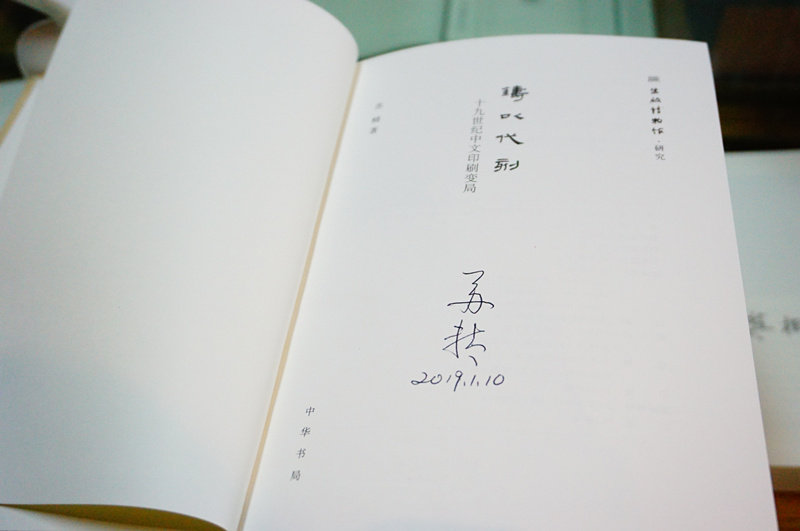 出版博物馆·研究
鑄以代刻
十九世纪中文印刷变局
苏 精 著
苏
精
2019.1.10
中华书局